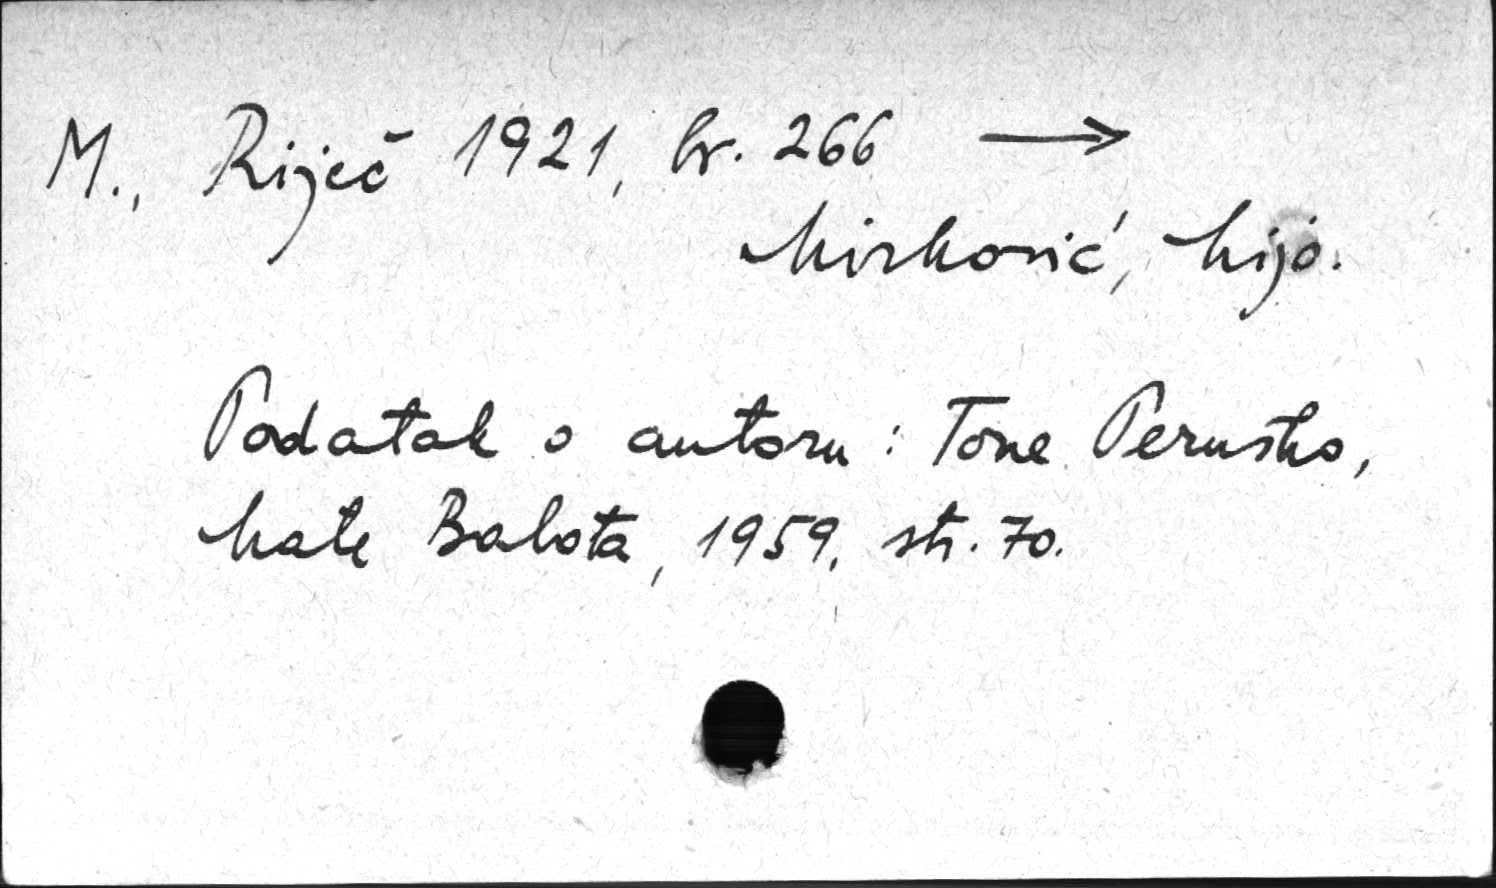 M., Riječ 1921, br. 266 →
Mirković, Mijo.
Podatak o autoru : Tone Peruško,
Mate Balota, 1959, str. 70.